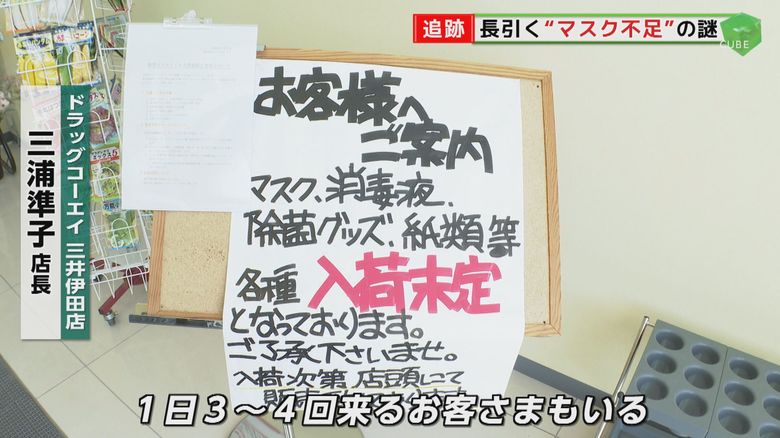 追跡 長引く“マスク不足”の謎
CUBE
ドラッグコーエイ 三井伊田店
三浦準子 店長
お客様へ
ご案内
マスク、消毒液、
除菌グッズ、紙類等
各種 入荷未定
となっております。
ご了承下さいませ。
入荷次第、店頭にて
1日3～4回来るお客さまもいる